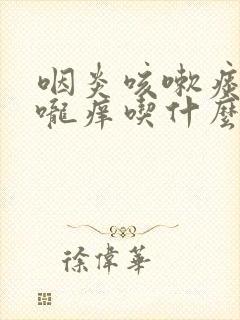 咽炎咳嗽痰
嚨痒喫什麽
徐偉華